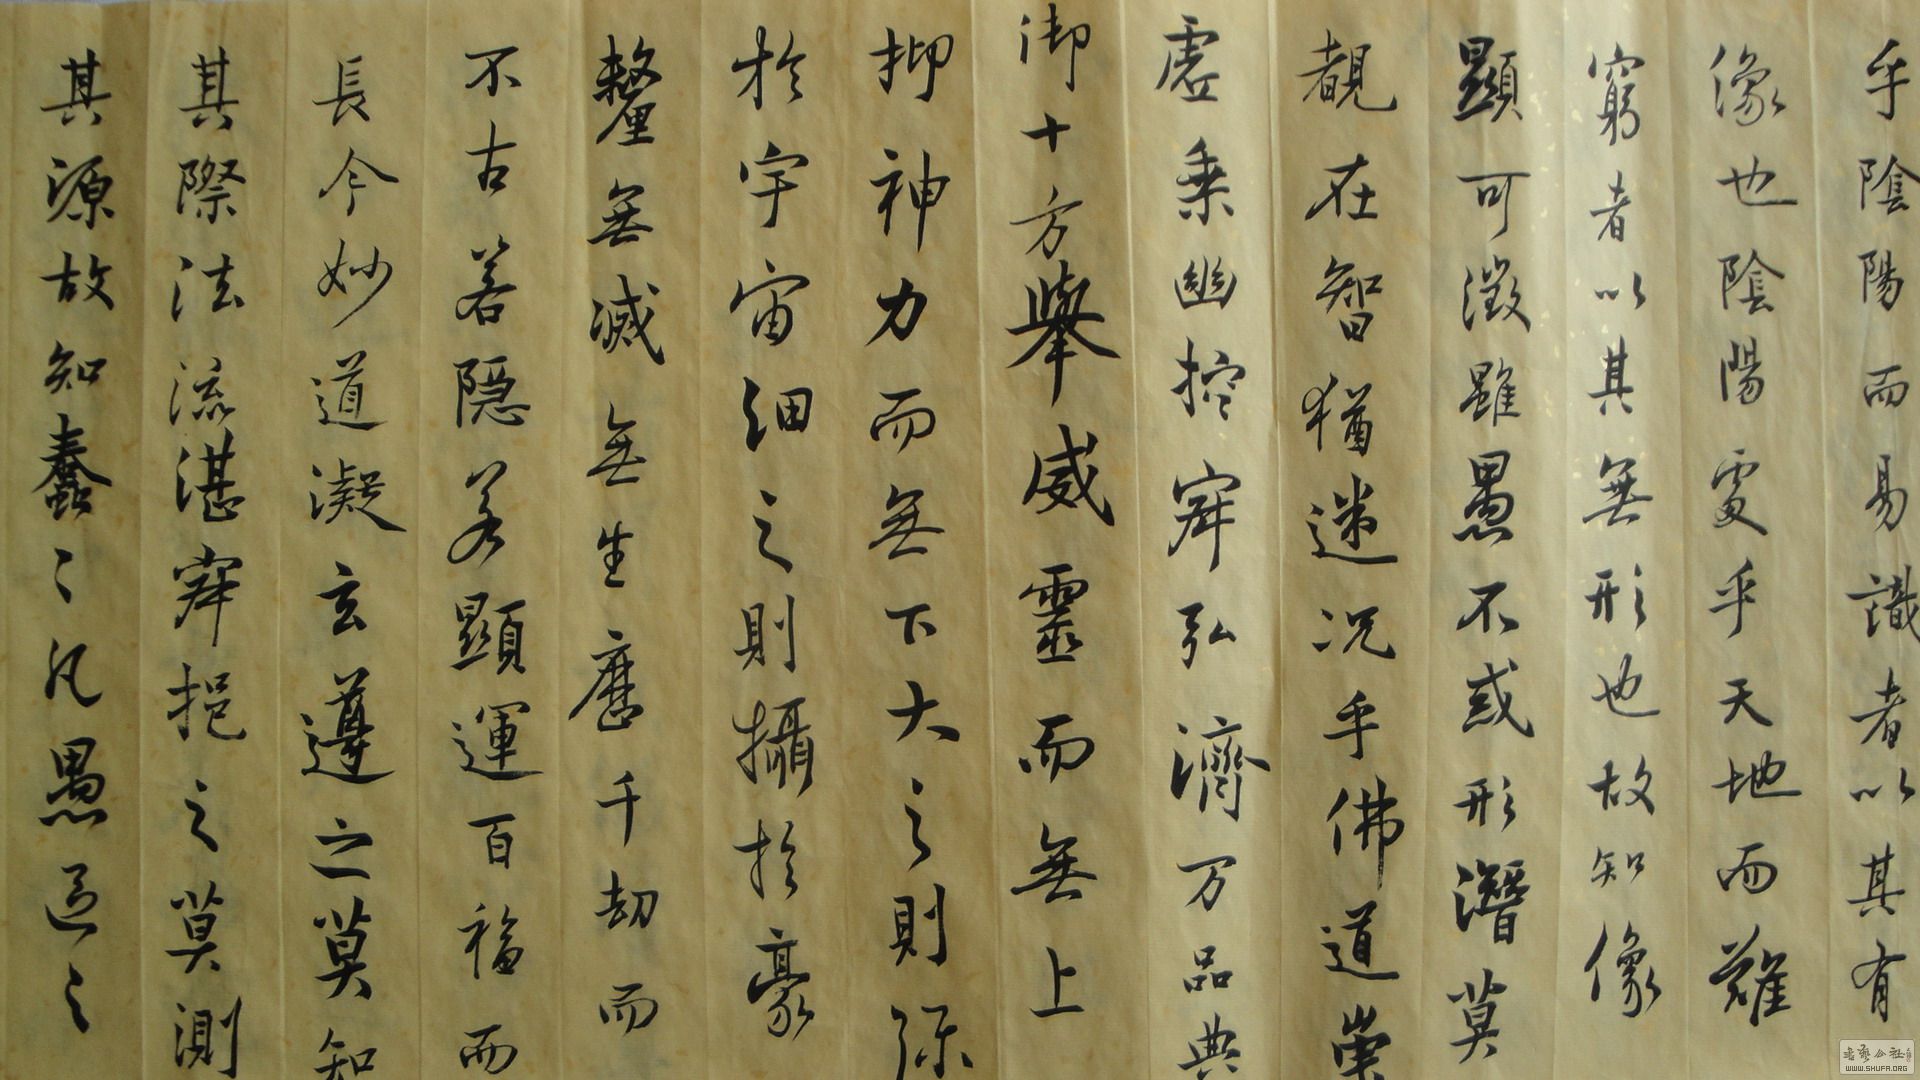 乎陰陽而易識者以其有
像也陰陽處乎天地而難
窮者以其無形也故知像
顯可徵雖愚不惑形潛莫
覩在智猶迷况乎佛道崇
虛乘幽控寂弘濟万品典
御十方舉威靈而無上
抑神力而無下大之則弥
於宇宙細之則攝於豪
釐無滅無生歷千劫而
不古若隱若顯運百福而
長今妙道凝玄遵之莫知
其際法流湛寂挹之莫測
其源故知蠢〻凡愚區〻
WWW.SHUFA.ORG